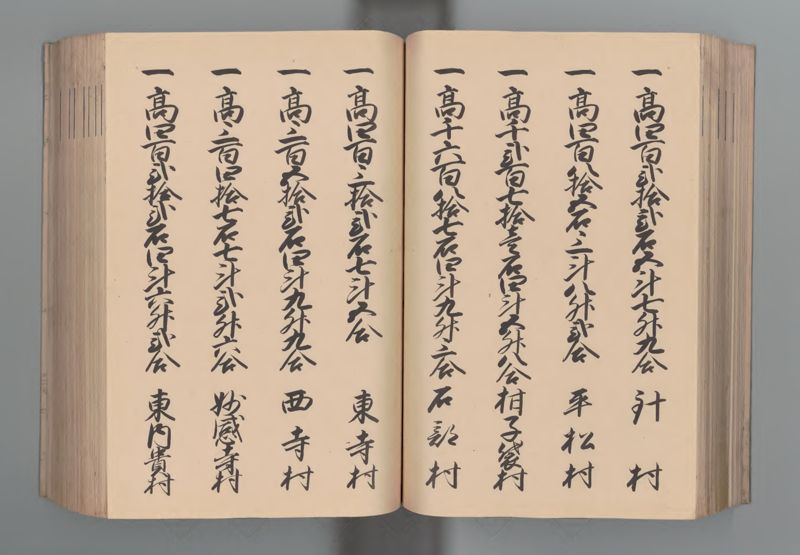 一高四百弐拾弐石五斗七升九合 針村
一高四百八拾五石三斗八升弐合 平松村
一高千弐百七拾壱石四斗五升八合 柑子袋村
一高千六百八拾七石四斗九升三合 石部村
一高四百三拾弐石七斗五合 東寺村
一高三百五拾弐石四斗九升九合 西寺村
一高三百四拾七石七斗弐升六合 妙感寺村
一高四百弐拾弐石四斗六升弐合 東内貴村